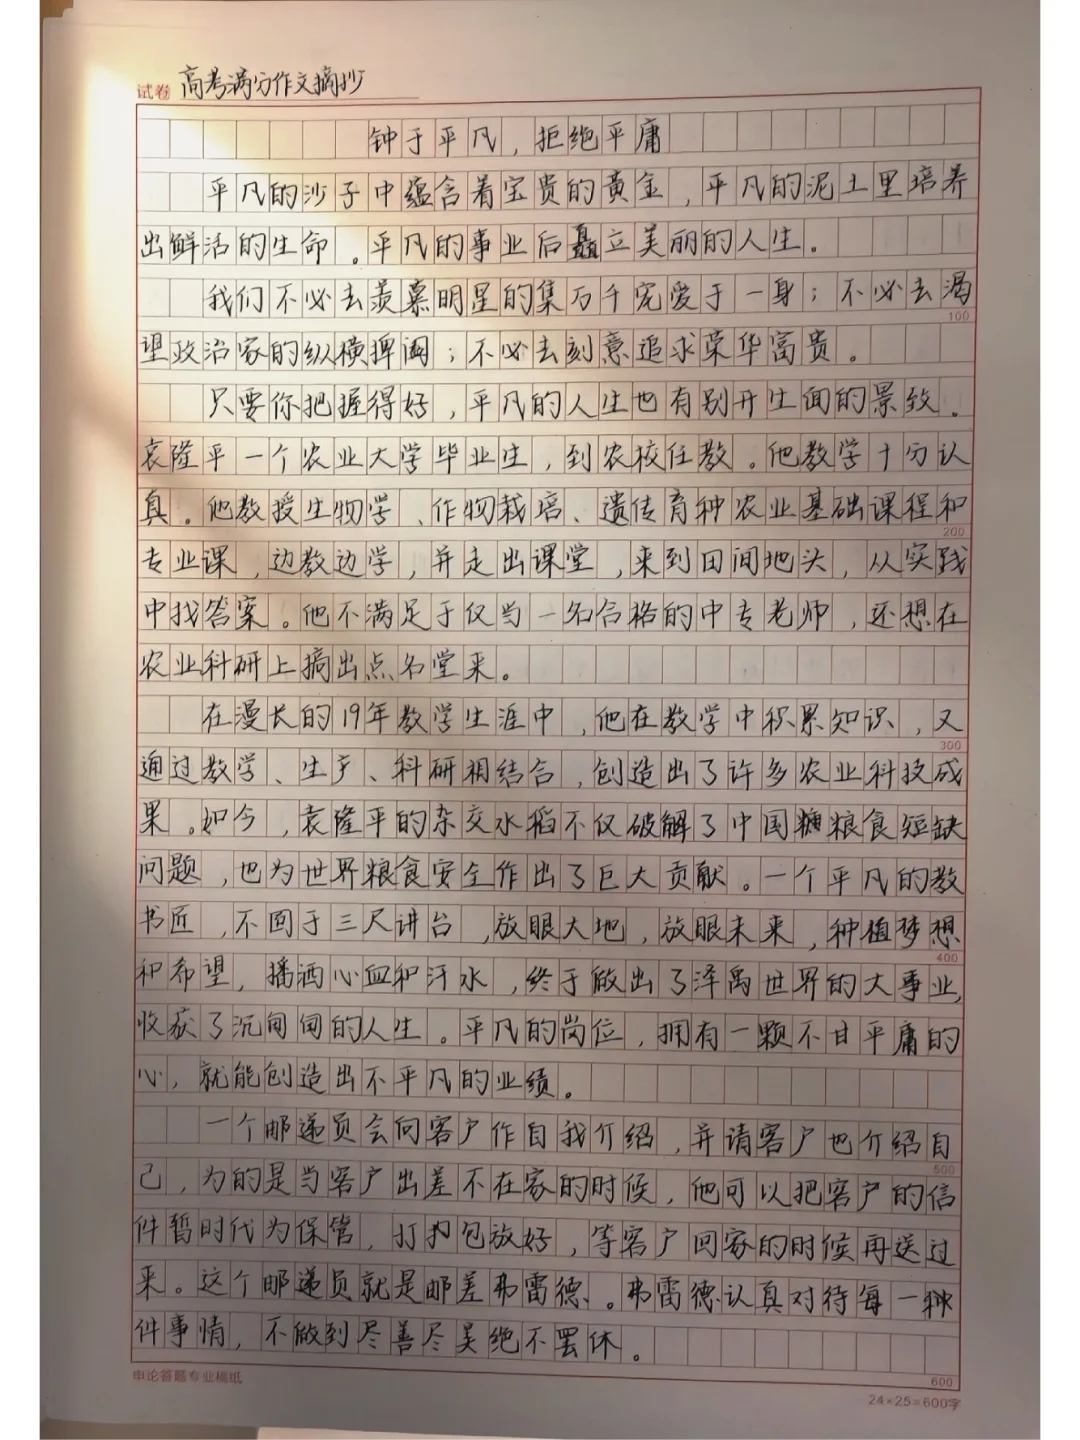 试卷 高考满分作文摘抄
钟于平凡，拒绝平庸
平凡的沙子中蕴含着宝贵的黄金，平凡的泥土里培养
出鲜活的生命。平凡的事业后矗立美丽的人生。
我们不必去羡慕明星的集万千宠爱于一身；不必去渴
100
望政治家的纵横捭阖；不必去刻意追求荣华富贵。
只要你把握得好，平凡的人生也有别开生面的景致。
袁隆平一个农业大学毕业生，到农校任教。他教学十分认
真。他教授生物学、作物栽培、遗传育种农业基础课程和
200
专业课，边教边学，并走出课堂，来到田间地头，从实践
中找答案。他不满足于仅当一名合格的中专老师，还想在
农业科研上搞出点名堂来。
在漫长的19年教学生涯中，他在教学中积累知识，又
300
通过教学、生产、科研相结合，创造出了许多农业科技成
果。如今，袁隆平的杂交水稻不仅破解了中国粮食短缺
问题，也为世界粮食安全作出了巨大贡献。一个平凡的教
书匠，不囿于三尺讲台，放眼大地，放眼未来，种植梦想
400
和希望，播洒心血和汗水，终于做出了泽禹世界的大事业，
收获了沉甸甸的人生。平凡的岗位，拥有一颗不甘平庸的
心，就能创造出不平凡的业绩。
一个邮递员会向客户作自我介绍，并请客户也介绍自
500
己，为的是当客户出差不在家的时候，他可以把客户的信
件暂时代为保管，打包放好，等客户回家的时候再送过
来。这个邮递员就是邮差弗雷德、。弗雷德认真对待每一种
件事情，不做到尽善尽美绝不罢休。
600
申论答题专业稿纸
24×25=600字